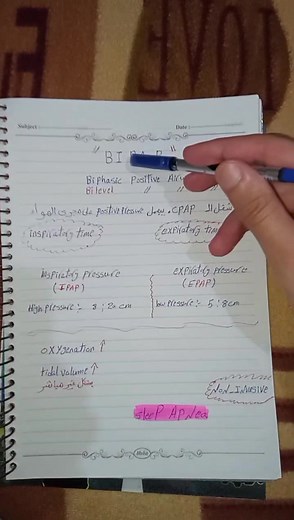 Subject :
Date :
" BI P A P "
Biphasic Positive Airw
Bilevel " "
CPAP. يوصل Positive Pressure
inspiratory time
expiratory time
Inspiratory pressure
expiratory pressure
(IPAP)
(EPAP)
High pressure :- 8 : 20 cm
low pressure :- 5 : 8 cm
oxygenation ↑
tidal volume ↑
بشكل غير مباشر
Non_Invasive
sleeP APNea